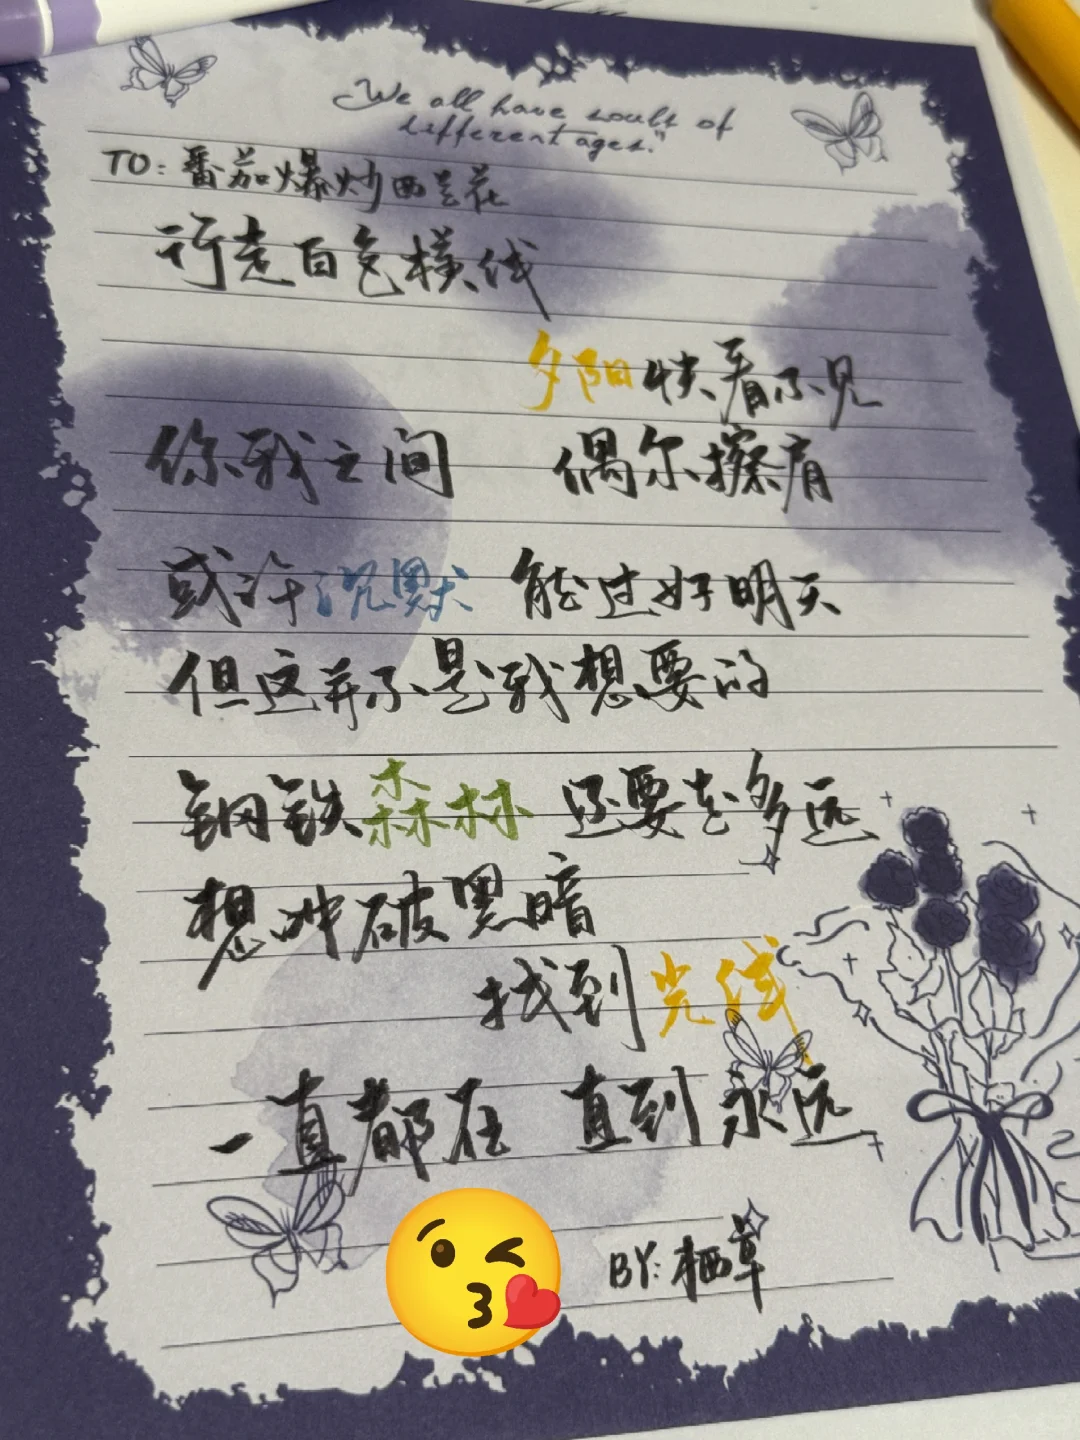 "We all have souls of
different ages."
TO: 番茄爆炒西兰花
行走百色横线
夕阳快看不见
你我之间 偶尔擦肩
或许沉默 能过好明天
但这并不是我想要的
钢铁森林 还要走多远
想冲破黑暗
找到光线
一直都在 直到永远
BY: 栖草